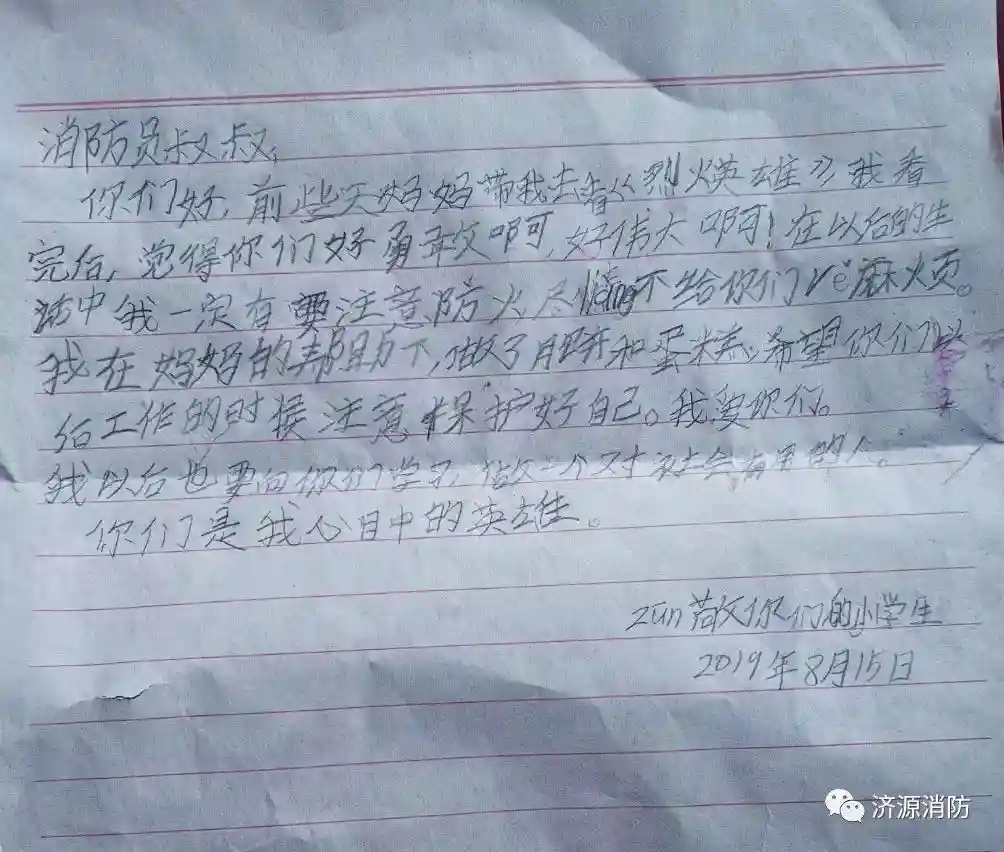 消防员叔叔，
你们好，前些天妈妈带我去看《烈火英雄》我看
完后，觉得你们好勇敢啊，好伟大啊！在以后的生
活中我一定有要注意防火尽liàng不给你们rě麻火页。
我在妈妈的帮助下，做了月饼和蛋糕。希望你们以
后工作的时候注意保护好自己。我爱你们。
我以后也要向你们学习，做一个对社会有用的人。
你们是我心目中的英雄。
zūn敬你们的小学生
2019年8月15日
济源消防